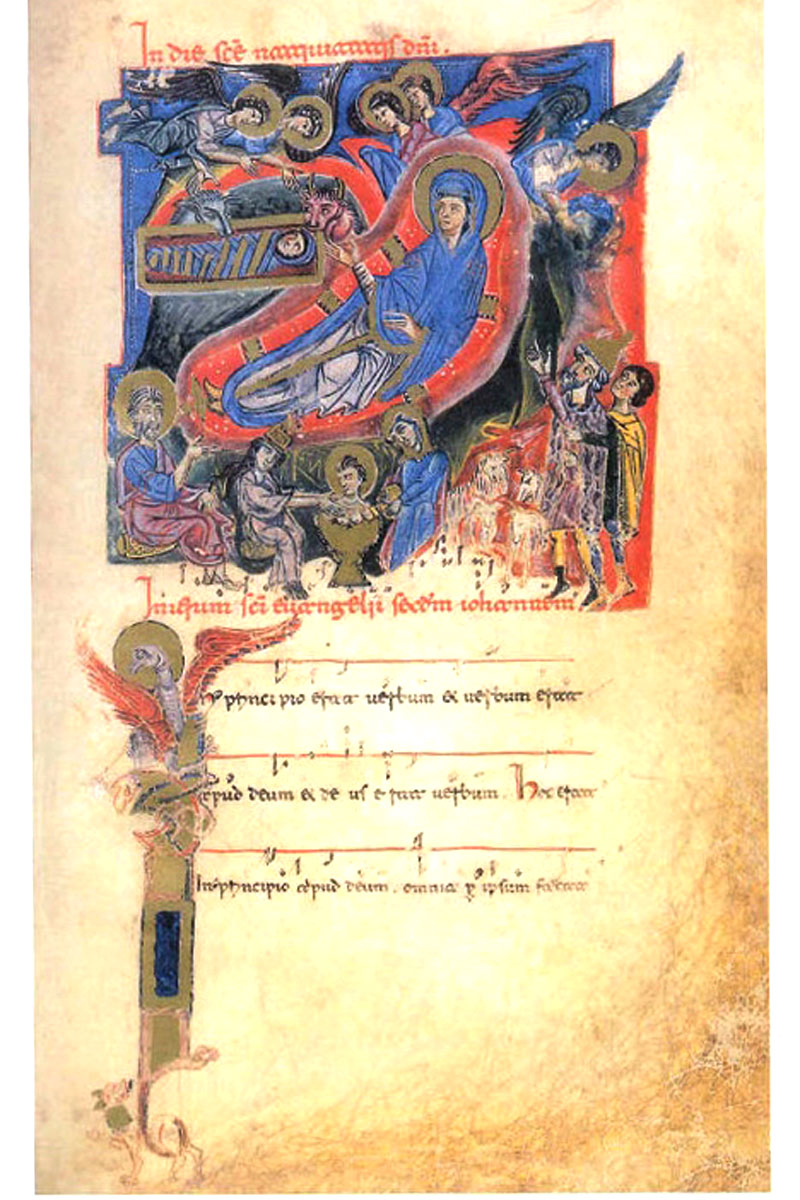 In die sc̄e natiuitatis dn̄i.
Initium sc̄i euangelii secd̄m iohannem
In principio erat uerbum & uerbum erat
apud deum & de us erat uerbum. Hoc erat
In principio apud deum. omnia p̱ ipsum facta